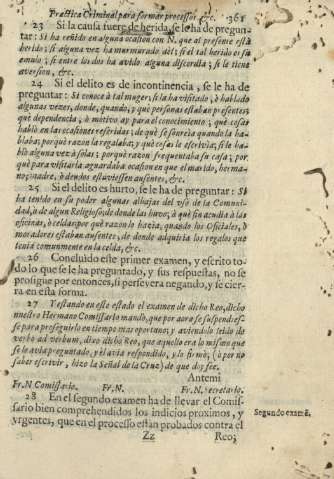 Practica Criminal para formar processos &c. 361
23 Si la causa fuere de herida, se le ha de pregun-
tar: Si ha reñido en alguna ocasion con N. que al presente està
herido; si alguna vez ha murmurado dèl; si el tal herido es su
emulo; si entre los dos ha avido alguna discordia; si le tiene
aversion, &c.
24 Si el delito es de incontinencia, se le ha de
preguntar: Si conoce à tal muger; si la ha visitado, ò hablado
algunas vezes, donde, quando; y què personas estaban presentes; què
dependencia, ò motivo ay para el conocimiento; què cosas
hablò en las ocasiones referidas; de què se sonreìa quando la ha-
blaba; por què razon la regalaba; y què cosas le ofrecia; si le ha-
blò alguna vez à solas; por què razon frequentaba su casa; por
què para visitarla aguardaba ocasion en que el marido, herma-
nos, padre, ò deudos estuviessen ausentes, &c.
25 Si el delito es hurto, se le ha de preguntar: Si
ha tenido en su poder algunas alhajas del vso de la Comuni-
dad, ò de algun Religioso; de donde las huvo; à què fin acudia à las
oficinas, ò celdas; por què razon lo hazia, quando los Oficiales, ò
moradores estaban ausentes, de donde adquiria los regalos que
tenia comunmente en la celda, &c.
26 Concluìdo este primer examen, y escrito to-
do lo que se le ha preguntado, y sus respuestas, no se
prosigue por entonces, si persevera negando, y se cier-
ra en esta forma.
27 Y estando en este estado el examen de dicho Reo, dicho
nuestro Hermano Comissario mandò, que por aora se suspendiesse
para proseguirlo en tiempo mas oportuno; y aviendolo leìdo de
verbo ad verbum, dixo dicho Reo, que aquello era lo mismo que
se le avia preguntado, y èl avia respondido, y lo firmò; (ò por no
saber escrivir, hizo la Señal de la Cruz) de que doy fee.
Antemi
Fr. N. Comissario. Fr. N. Fr. N. Secretario.
28 En el segundo examen ha de llevar el Comis-
sario bien comprehendidos los indicios proximos, y
vrgentes, que en el processo estàn probados contra el
Segundo examē.
Zz Reo;